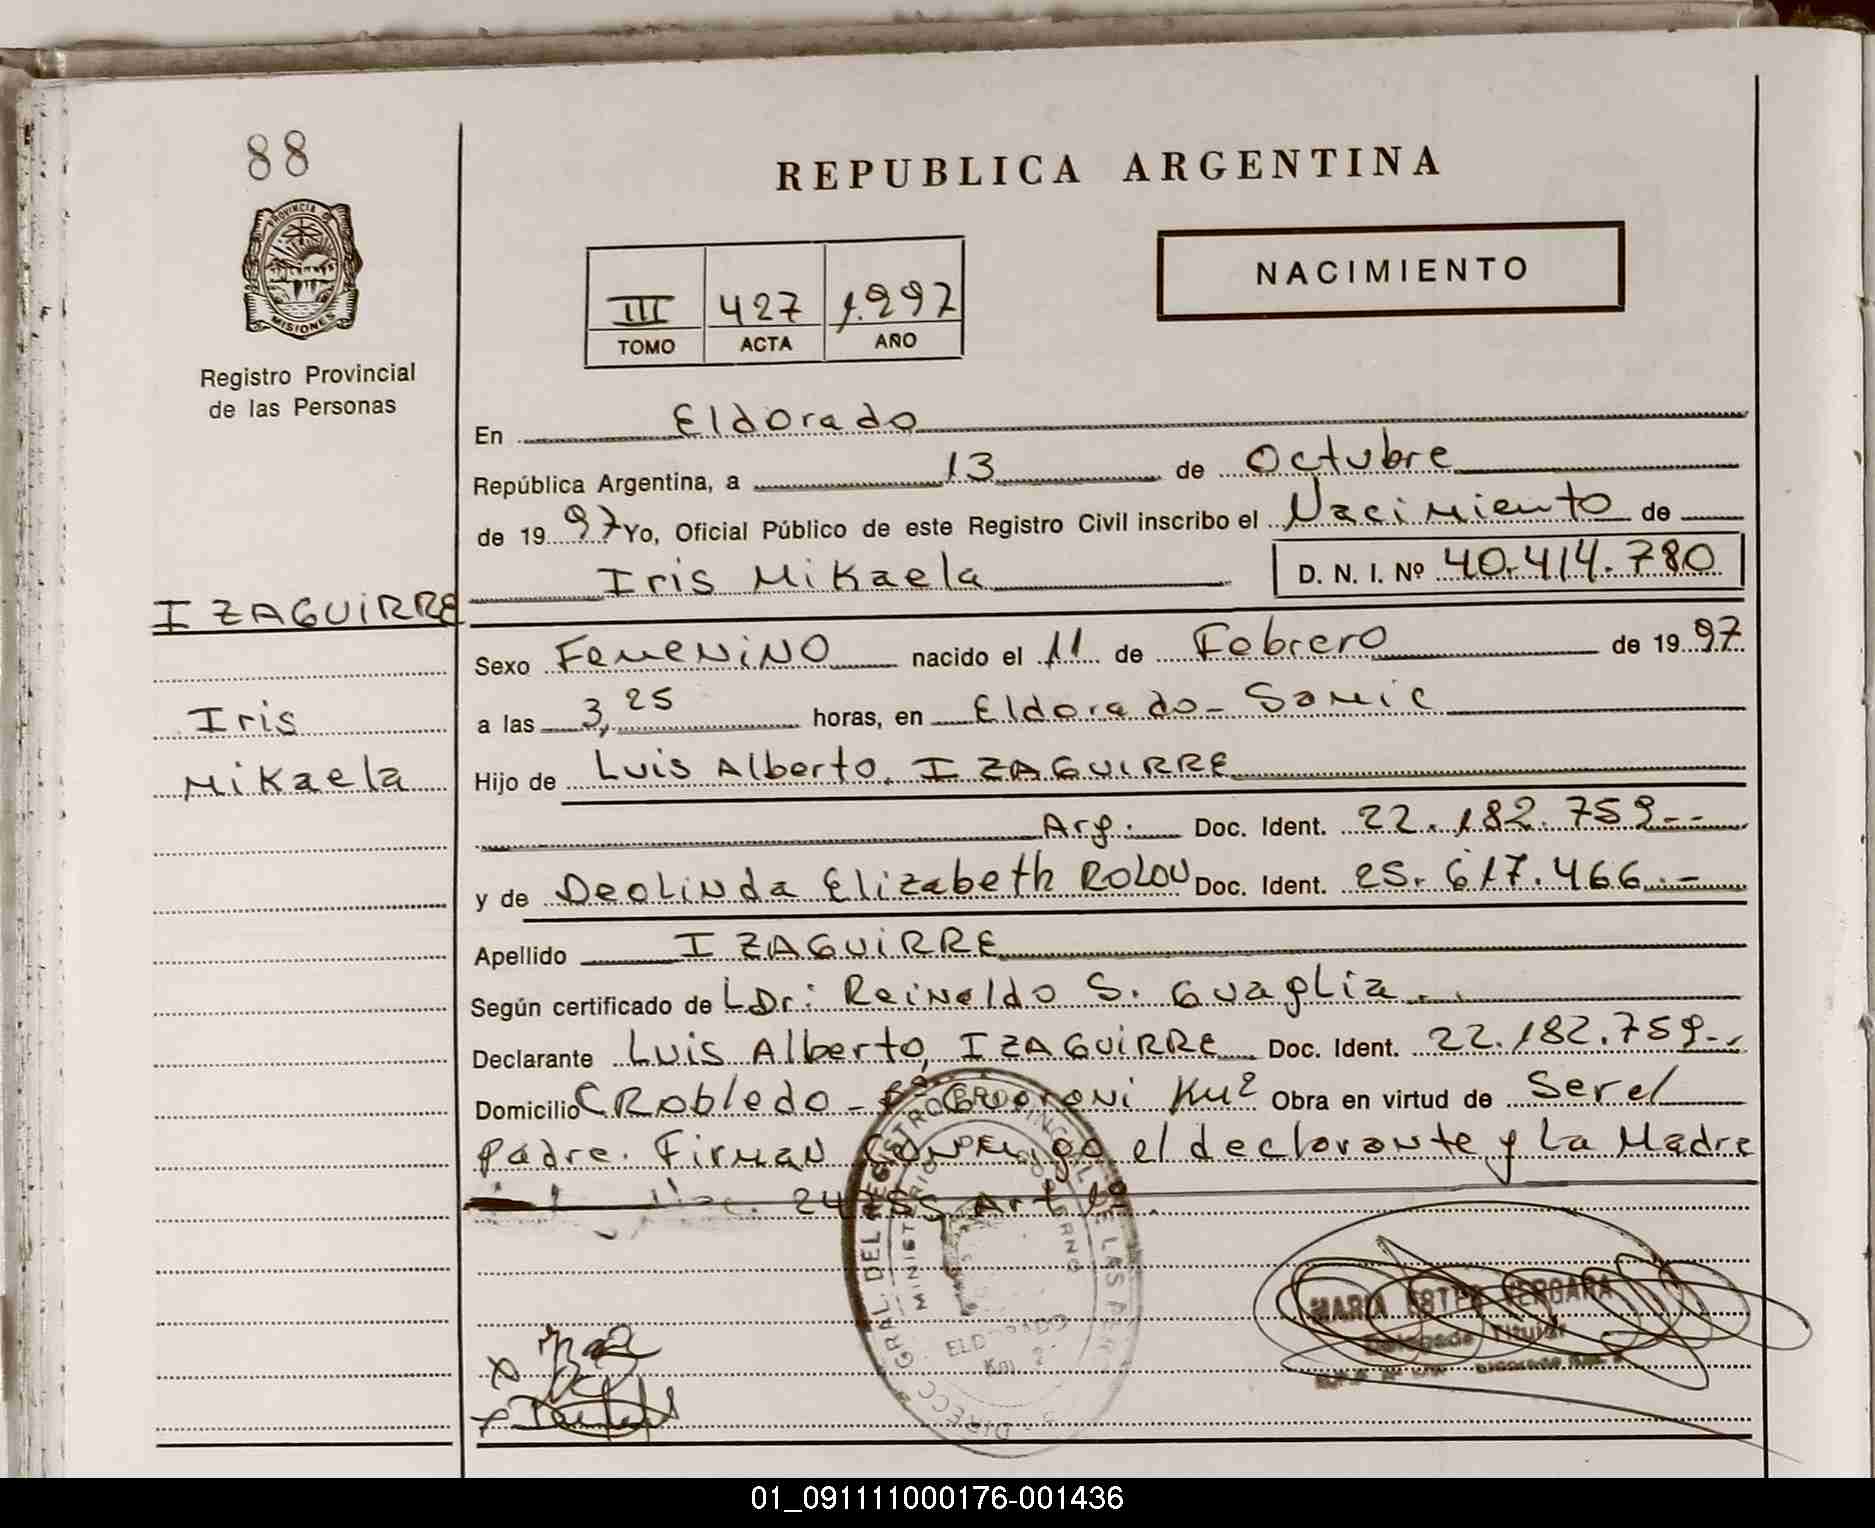 88
REPUBLICA ARGENTINA
PROVINCIA DE
MISIONES
Registro Provincial
de las Personas
NACIMIENTO
III 427 1.997
TOMO ACTA AÑO
En Eldorado
República Argentina, a 13 de Octubre
de 1997 Yo, Oficial Público de este Registro Civil inscribo el Nacimiento de
Iris Mikaela D. N. I. Nº 40.414.780
IZAGUIRRE
Iris
Mikaela
Sexo Femenino nacido el 11 de Febrero de 1997
a las 3,25 horas, en Eldorado - Samic
Hijo de Luis Alberto, IZAGUIRRE
Arg. Doc. Ident. 22.182.759--
y de Deolinda Elizabeth ROLON Doc. Ident. 25.617.466.-
Apellido IZAGUIRRE
Según certificado de L Dr: Reinaldo S. Guaglia..
Declarante Luis Alberto, IZAGUIRRE Doc. Ident. 22.182.759--
Domicilio C Robledo - Bº Guarani Km2 Obra en virtud de Ser el
Padre. Firman Conmigo el declarante y La Madre
Art
DIREC. GRAL. DEL REGISTRO PROVINCIAL DE LAS
MINISTERIO DE GOBIERNO
ELDORADO
Km. 2
MARIA ESTER VERGARA
Delegada Titular
01_091111000176-001436